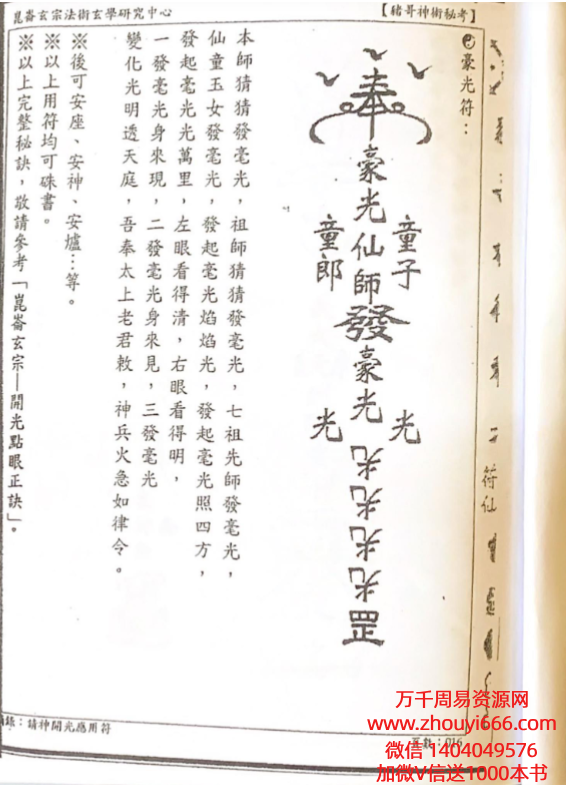 崑崙玄宗法術玄學研究中心
【豬哥神術秘考】
豪光符：
奉
豪光仙師發豪光
童子
童郎
光
光
光光光光
本師猜猜發毫光，祖師猜猜發毫光，七祖先師發毫光，
仙童玉女發毫光，發起毫光焰焰光，發起毫光照四方，
發起毫光光萬里，左眼看得清，右眼看得明，
一發毫光身來現，二發毫光身來見，三發毫光
變化光明透天庭，吾奉太上老君敕，神兵火急如律令。
※後可安座、安神、安爐…等。
※以上用符均可硃書。
※以上完整秘訣，敬請參考「崑崙玄宗—開光點眼正訣」。
二符仙
錄：請神開光應用符
萬千周易资源网
www.zhouyi666.com
微信 1404049576
加微V信送1000本书